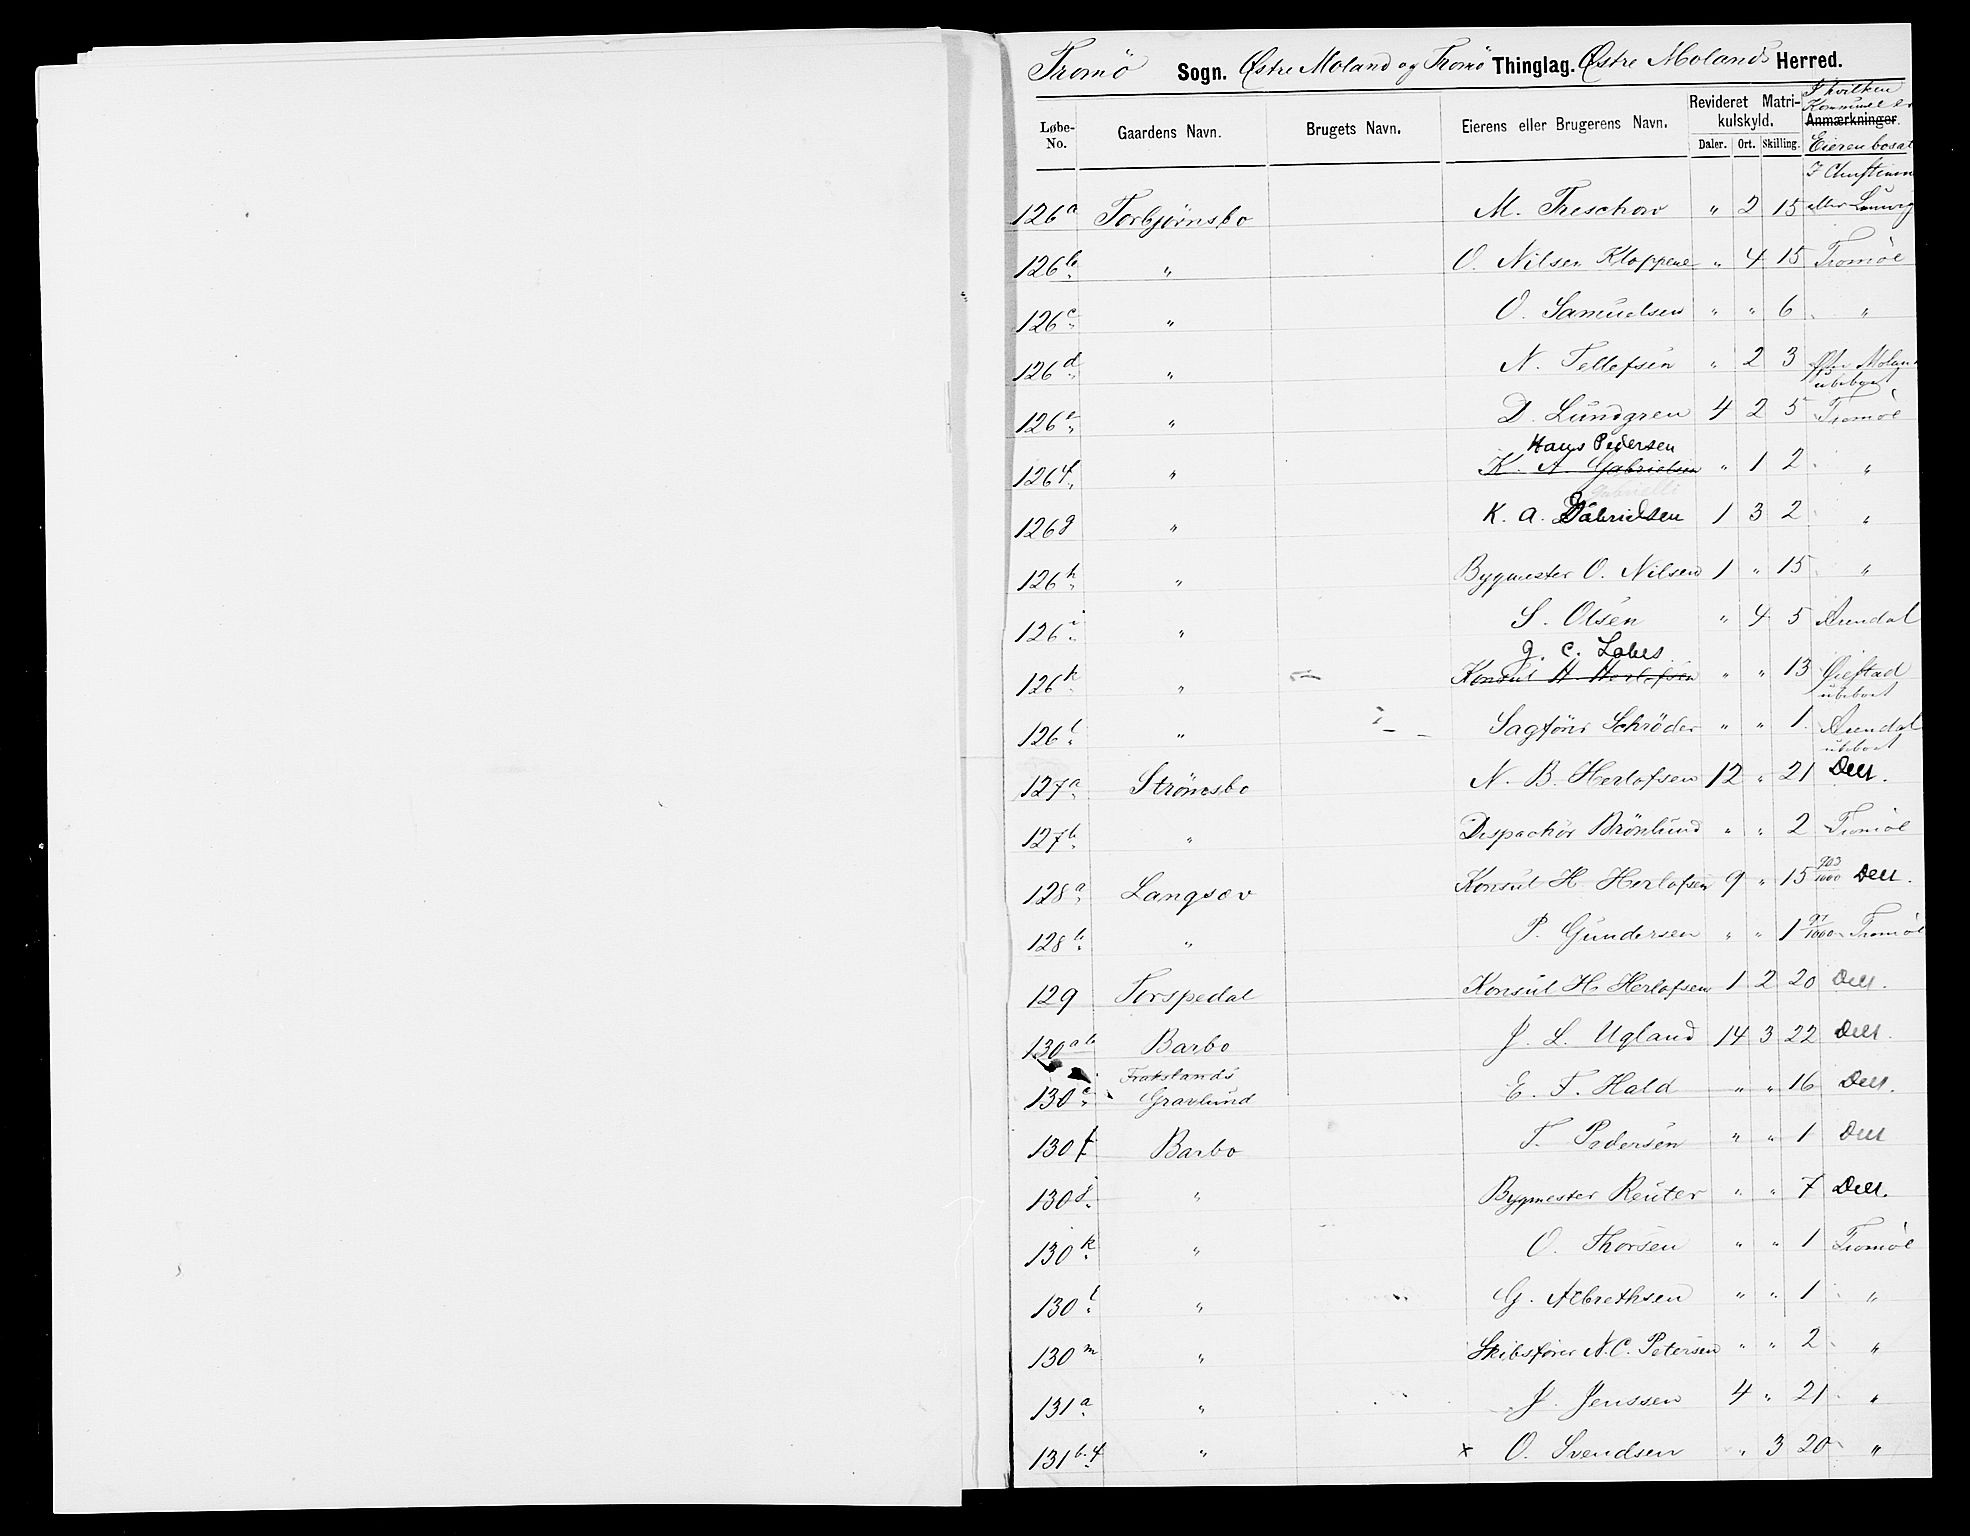 Tromö Sogn. Østre Moland og Tromö Thinglag. Østre Molands Herred.
Løbe-No. Gaardens Navn. Brugets Navn. Eierens eller Brugerens Navn. Revideret Matrikulskyld. Daler. Ort. Skilling. Anmærkninger. I hvilken Kommune er Eieren bosat
126a Torbjørnsbo M. Treschow " 2 15 eller
126b " O. Nilsen Kloppene " 4 15 Tromöe
126c " O. Samuelsen " " 6 "
126d " N. Tellefsen " 2 3 Østre Moland ubeboet
126e " D. Lundgren 4 2 5 Tromöe
Hans Pedersen
126f " K. A. Gabrielsen " 1 2 "
126g " K. A. Gabrielsen 1 3 2 "
126h " Bygmester O. Nilsen 1 " 15 "
126i " S. Olsen " 4 5 Arendal
126k " Konsul H. Herlofsen " " 13 Øiestad ubeboet
126l " Sagförer Schröder " " 1 Arendal ubeboet
127a Strömsbo N. B. Herlofsen 12 " 21 Do
127b " Dispachör Brönlund " " 2 Tromöe
128a Langsæv Konsul H. Herlofsen 9 " 15 903/1000 Do
128b " P. Gundersen " " 1 97/1000 Tromöe
129 Torspedal Konsul H. Herlofsen 1 2 20 Do
130ab Barbo J. L. Ugland 14 3 22 Do
130e Frakslands Gravlund E. F. Hald " " 16 Do
130f Barbo T. Pedersen " " 1 Do
130g " Bygmester Reuter " " 7 Do
130k " O. Thorsen " " 1 Tromöe
130l " G. Albrethsen " " 1 "
130m " Skibsförer N. C. Petersen " " 2 "
131a " J. Jenssen 4 " 21 "
131b.4 " x O. Svendsen " 3 20 "